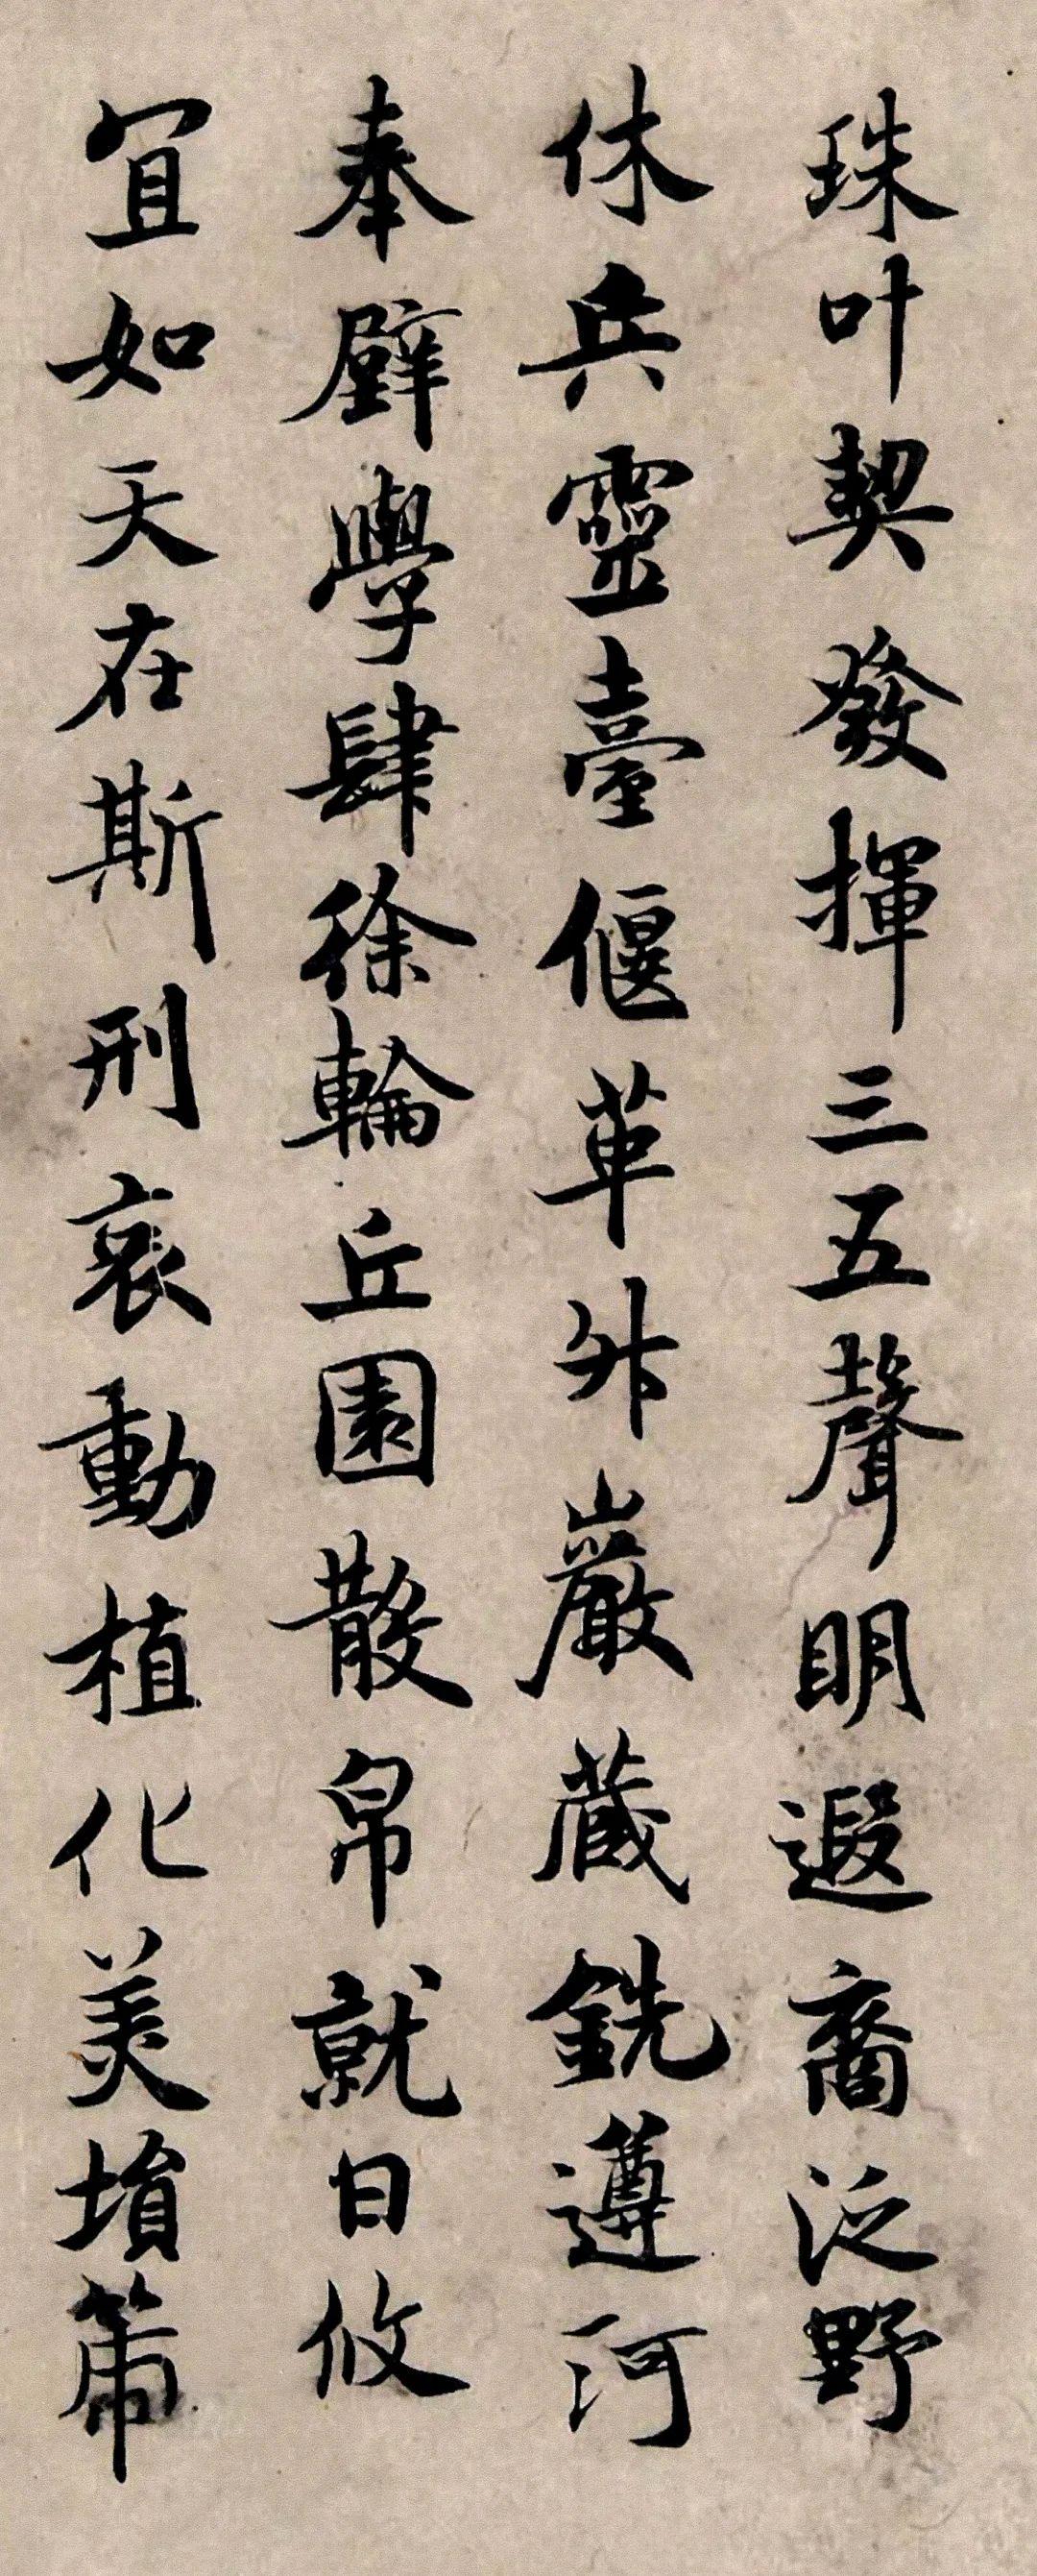 珠叶契發揮三五聲明遐裔泛野
休兵靈臺偃革升巖藏銑遵河
奉璧學肆徐輪丘園散帛就日攸
宜如天在斯刑哀動植化美塤